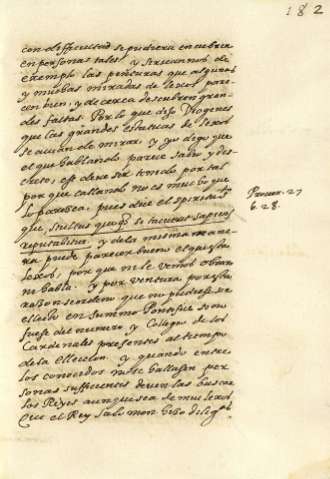 182
con difficultad se pudiera encubrir
en personas tales y sirvannos de
exemplo las pinturas que algunas
y muchas miradas de lexos pare
cen bien, y de cerca descubren gran
des faltas. Por lo que dixo Diogenes
que las grandes estatuas de lexos
se avian de mirar. y yo digo que
el que hablando parece sabio y dis
creto, esse deve ser tenido por tal
por que callando no es mucho que
lo parezca, pues dize el spiritu
que, stultus quoque si tacuerit sapiens
reputabitur, y de la misma mane
ra puede parecer bueno el que esta
lexos, por que ni le vemos obrar
ni habla. y por ventura por esta
razon se ordeno que no pudiesse ser
electo en summo Pontifice sino
fuesse del numero y Collegio de los
Cardenales presentes al tiempo
de la Eleccion. y quando entre
los conocidos no se hallassen per
sonas sufficientes deven las buscar
los Reyes aunque sea de muy lexos
Que el Rey Salomon hizo
Prouer. 27
6.28.